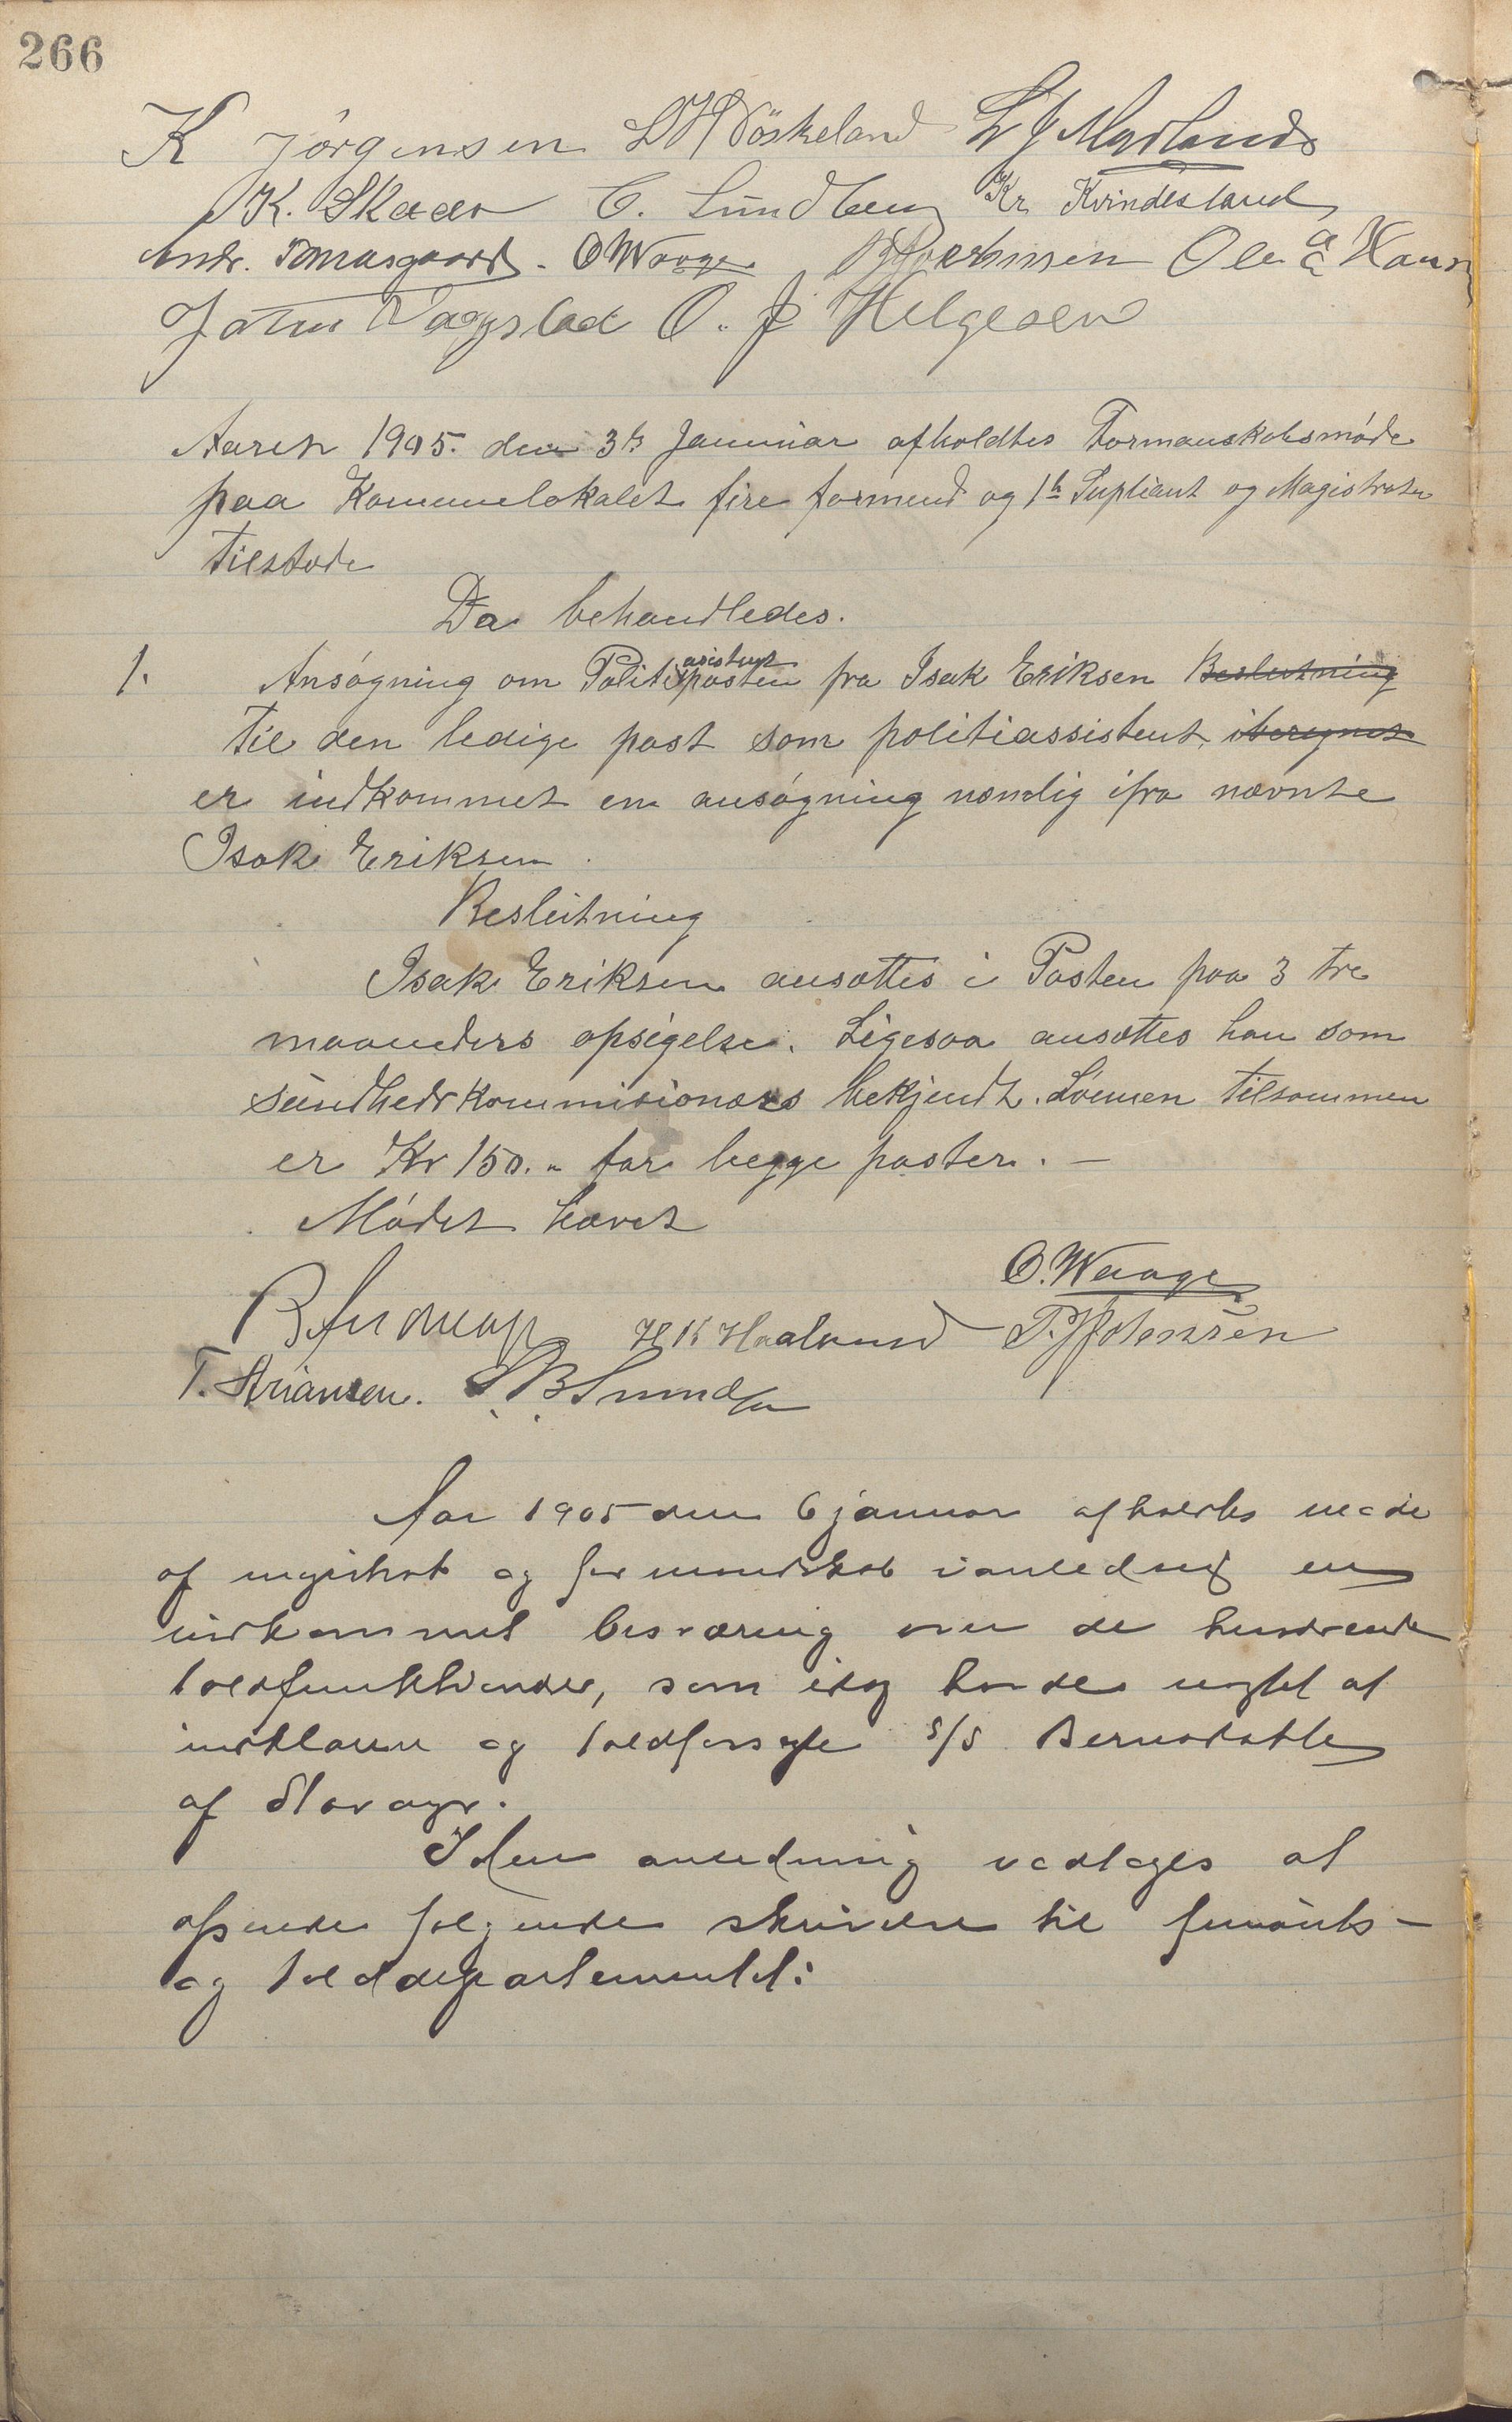 266
K Jørgensen L H Vöskeland L J Marlands
K. Skaar C. Sundberg Kr. Kvindesland
Andr. Tomasgaard. O Waage Ole
John Vagstad O. J Helgesen
Aaren 1905. den 3de Januar afholdtes Formanskabsmøde
paa Komunelokalet fire formend og 1ste Supliant og Magistraten
tilstede
Da behandledes.
1. Ansøgning om Politiasistentposten fra Isak Eriksen Beslutning
Til den ledige post som politiassistent
er indkommet en ansøgning nemlig ifra nævnte
Isak Eriksen.
Beslutning
Isak Eriksen ansættes i Posten paa 3 tre
maaneders opsigelse. Ligesaa ansættes han som
sundhedskommisionærs bekjendt. Lønnen tilsammen
er Kr 150.- for begge poster. -
Mødet hævet
O. Waage
H K Haaland
T. Ariansen. S. B. Sund
Aar 1905 den 6 januar afholdtes møde
af magistrat og formandskab i anledning en
indkommet besværing over de herværende
toldfunktionærer, som idag havde negtet at
indklarere og toldforsegle S/S Bernadotte
af Stavanger.
I den anledning vedtoges at
afsende følgende skrivelse til finants-
og tolddepartementet: